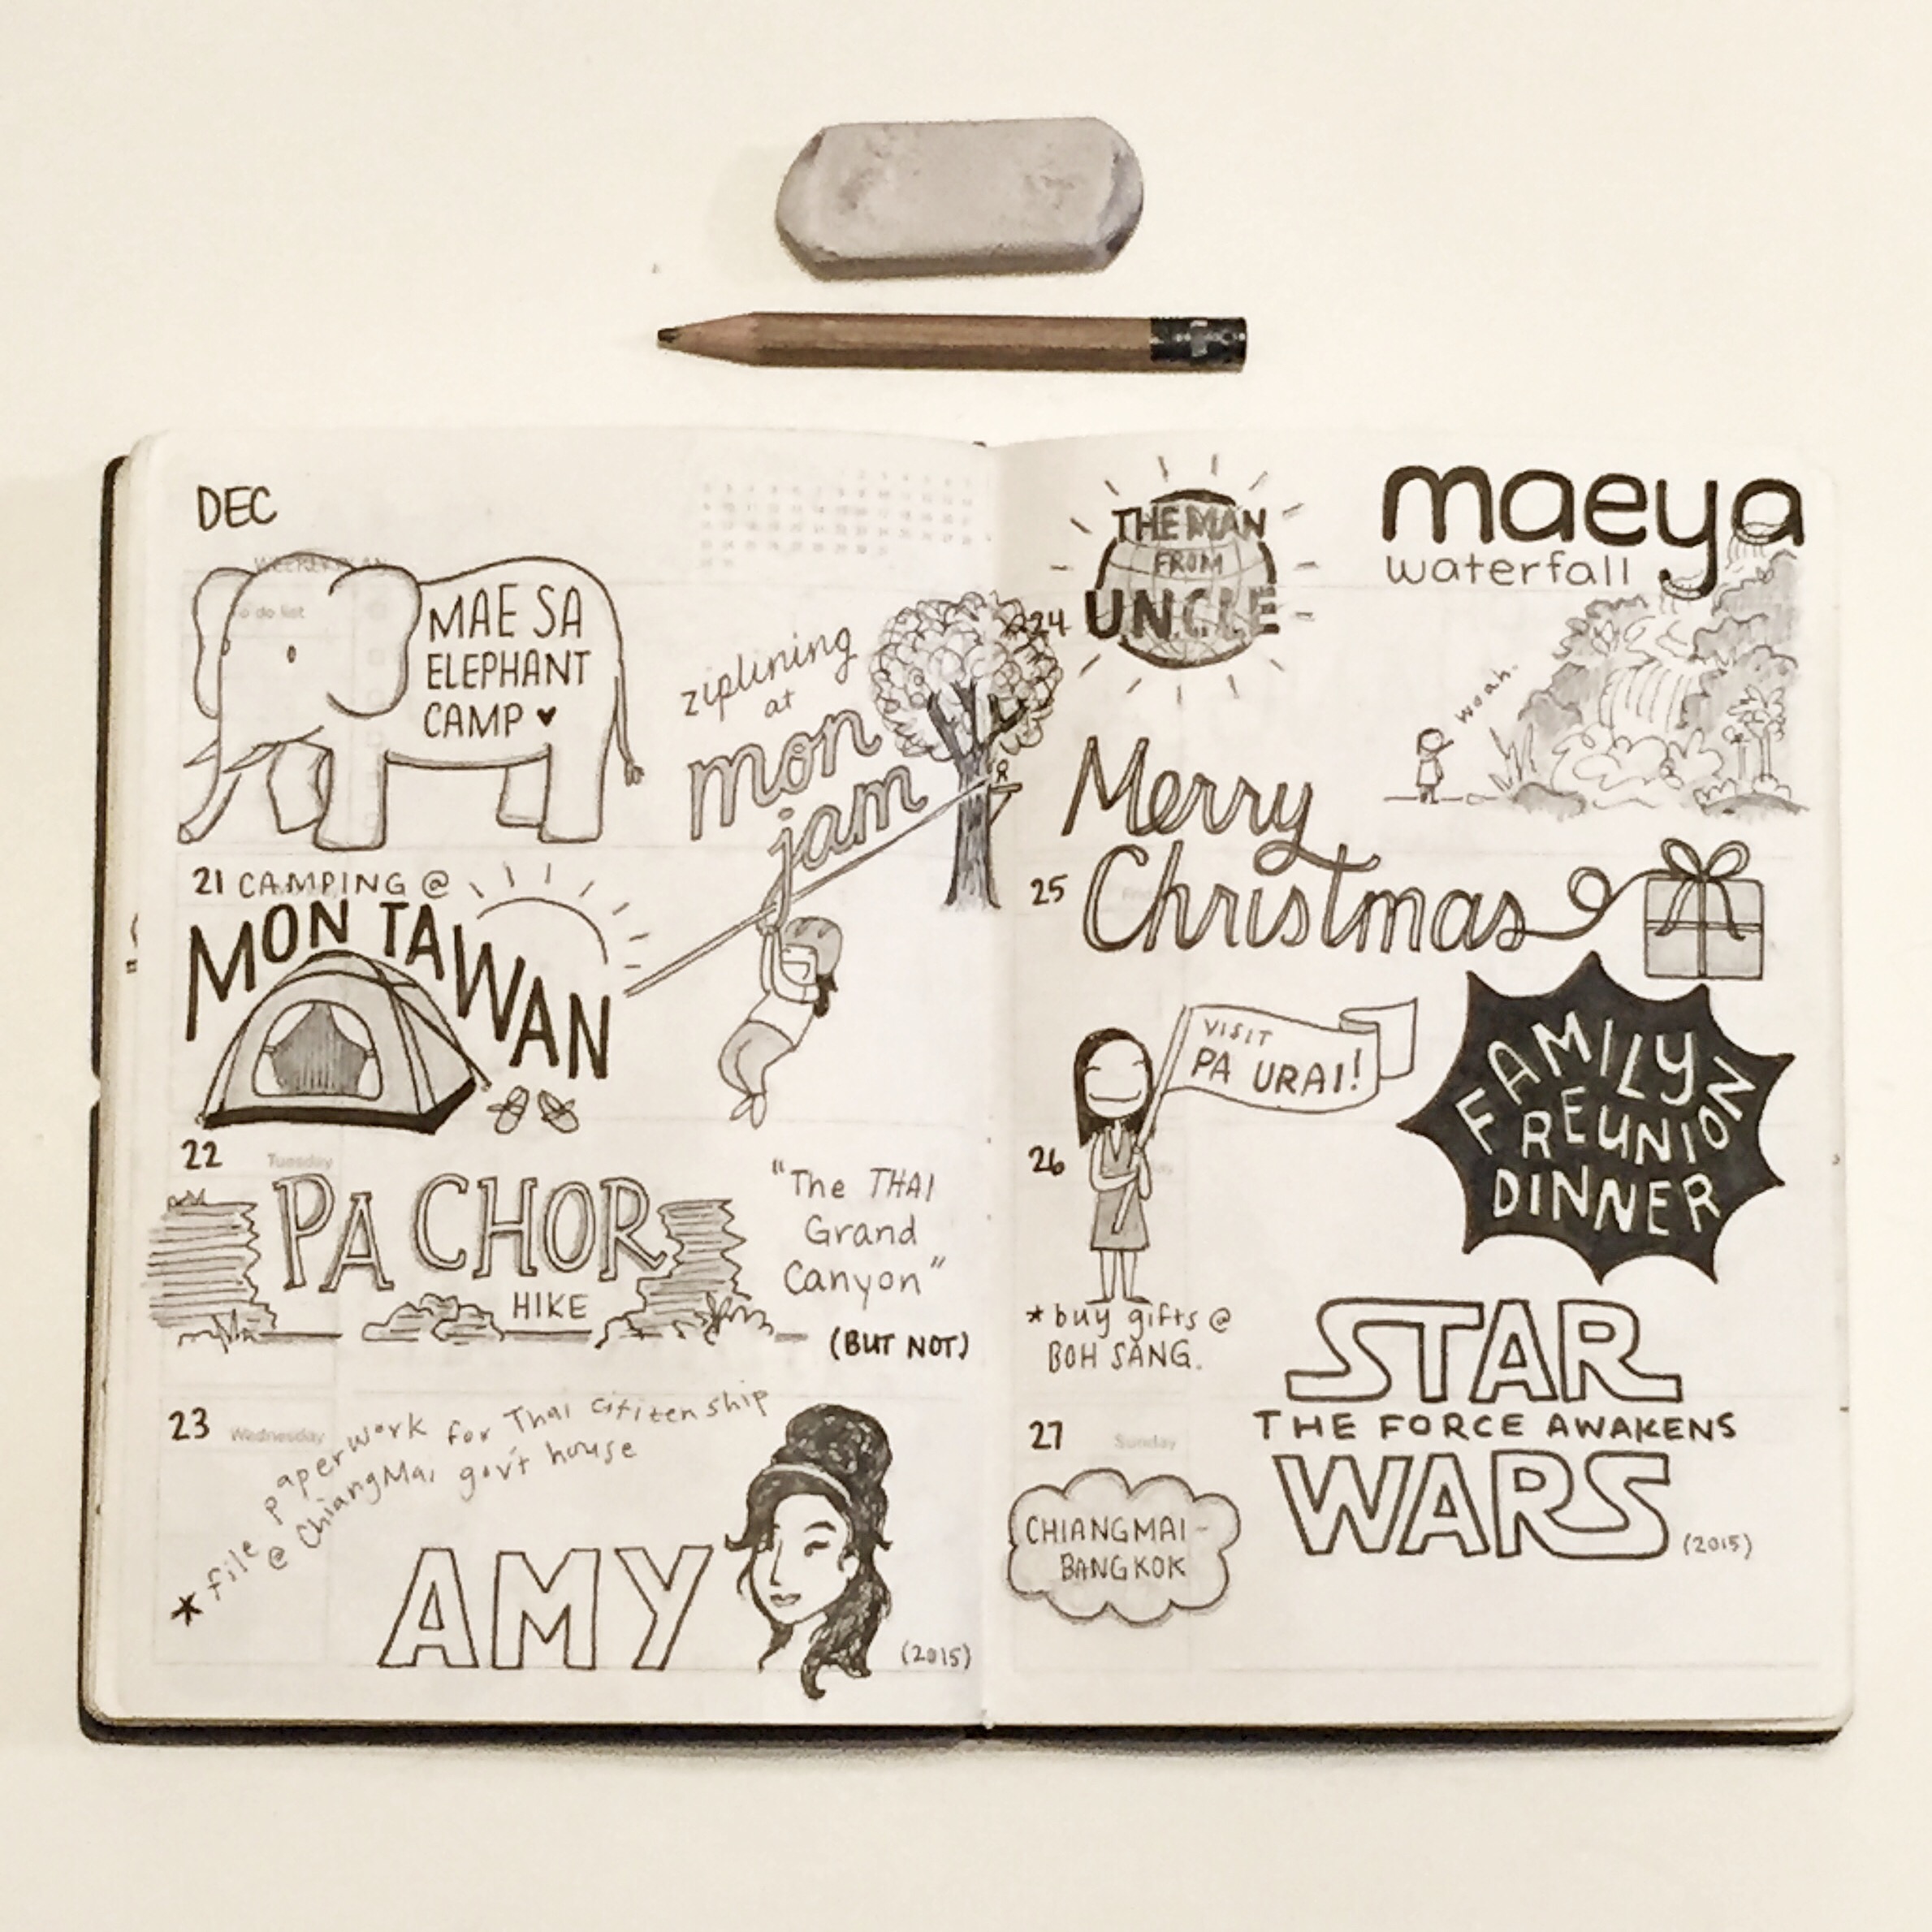 DEC
WEEKLY PLAN
To do list
MAE SA
ELEPHANT
CAMP ♥
ziplining
at
mon
jam
21 CAMPING @
MON TAWAN
22
Tuesday
PA CHOR
HIKE
"The THAI
Grand
Canyon"
(BUT NOT)
23
Wednesday
* file paperwork for Thai citizenship
@ ChiangMai gov't house
AMY
(2015)
24
THE MAN
FROM
U.N.C.L.E
maeya
waterfall
woah.
Merry
25
Christmas
VISIT
PA URAI!
26
FAMILY
REUNION
DINNER
*buy gifts @
BOH SANG.
27
Sunday
STAR
THE FORCE AWAKENS
WARS
(2015)
CHIANGMAI-
BANGKOK